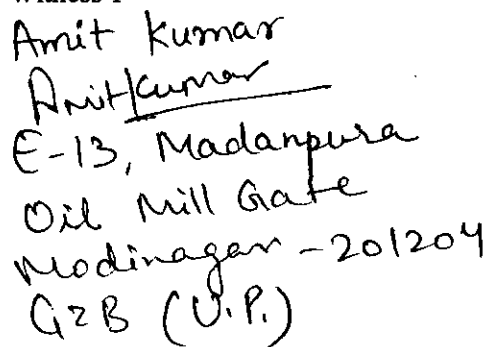 Witness-1
Amit Kumar
AmitKumar
E-13, Madanpura
Oil Mill Gate
Modinagar - 201204
GZB (U.P.)